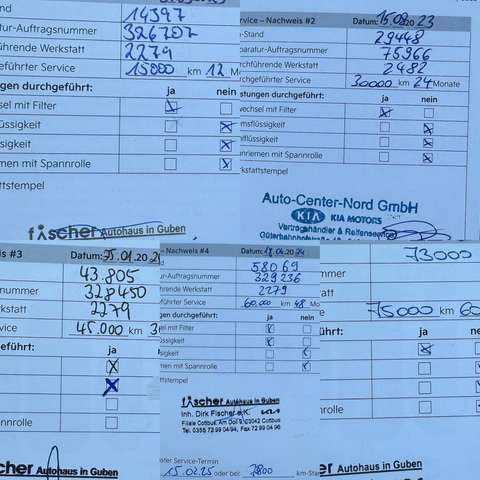 14397
-Auftragsnummer 326707
führende Werkstatt 2279
geführter Service 15000 km 12 M
ngen durchgeführt: ja nein
sel mit Filter
lüssigkeit
sigkeit
emen mit Spannrolle
ttstempel
fischer Autohaus in Guben
ervice – Nachweis #2 Datum: 15.08.20 23
-Stand 29448
paratur-Auftragsnummer 75966
rchführende Werkstatt 2482
chgeführter Service 30000 km 24 Monate
istungen durchgeführt: ja nein
wechsel mit Filter
msflüssigkeit
lflüssigkeit
nriemen mit Spannrolle
rkstattstempel
Auto-Center-Nord GmbH
KIA KIA MOTORS
Vertragshändler & Reifenservice
is #3 Datum: 25.01.20 24
43.805
nummer 328450
kstatt 2279
vice 45.000 km 3
geführt: ja
annrolle
cher Autohaus in Guben
– Nachweis #4 Datum: 17.04.20 24
58069
ur-Auftragsnummer 329236
hrende Werkstatt 2279
führter Service 60.000 km 48 Mo
gen durchgeführt: ja nein
sel mit Filter
ssigkeit
igkeit
men mit Spannrolle
ttstempel
fischer Autohaus in Guben
Inh. Dirk Fischer e.K. KIA
Filiale Cottbus, Am Doll 9, 03042 Cottbus
Tel. 0355 72 99 04 94, Fax 72 99 04 96
ster Service-Termin
15.02.25 oder bei: 7800 km-Sta
73000
mmer
att
e 75000 km 60
hrt: ja nein
rolle
er Autohaus in Guben